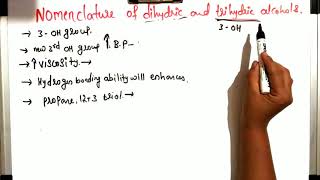 Nomenclature of dihydric and trihydric alcohols.
3-OH
→ 3-OH group.
→ new 2nd OH group ↑ B.P-
→ ↑ viscosity. →
→ Hydrogen bonding ability will enhances.
→ propane, 1 2 3 triol. →